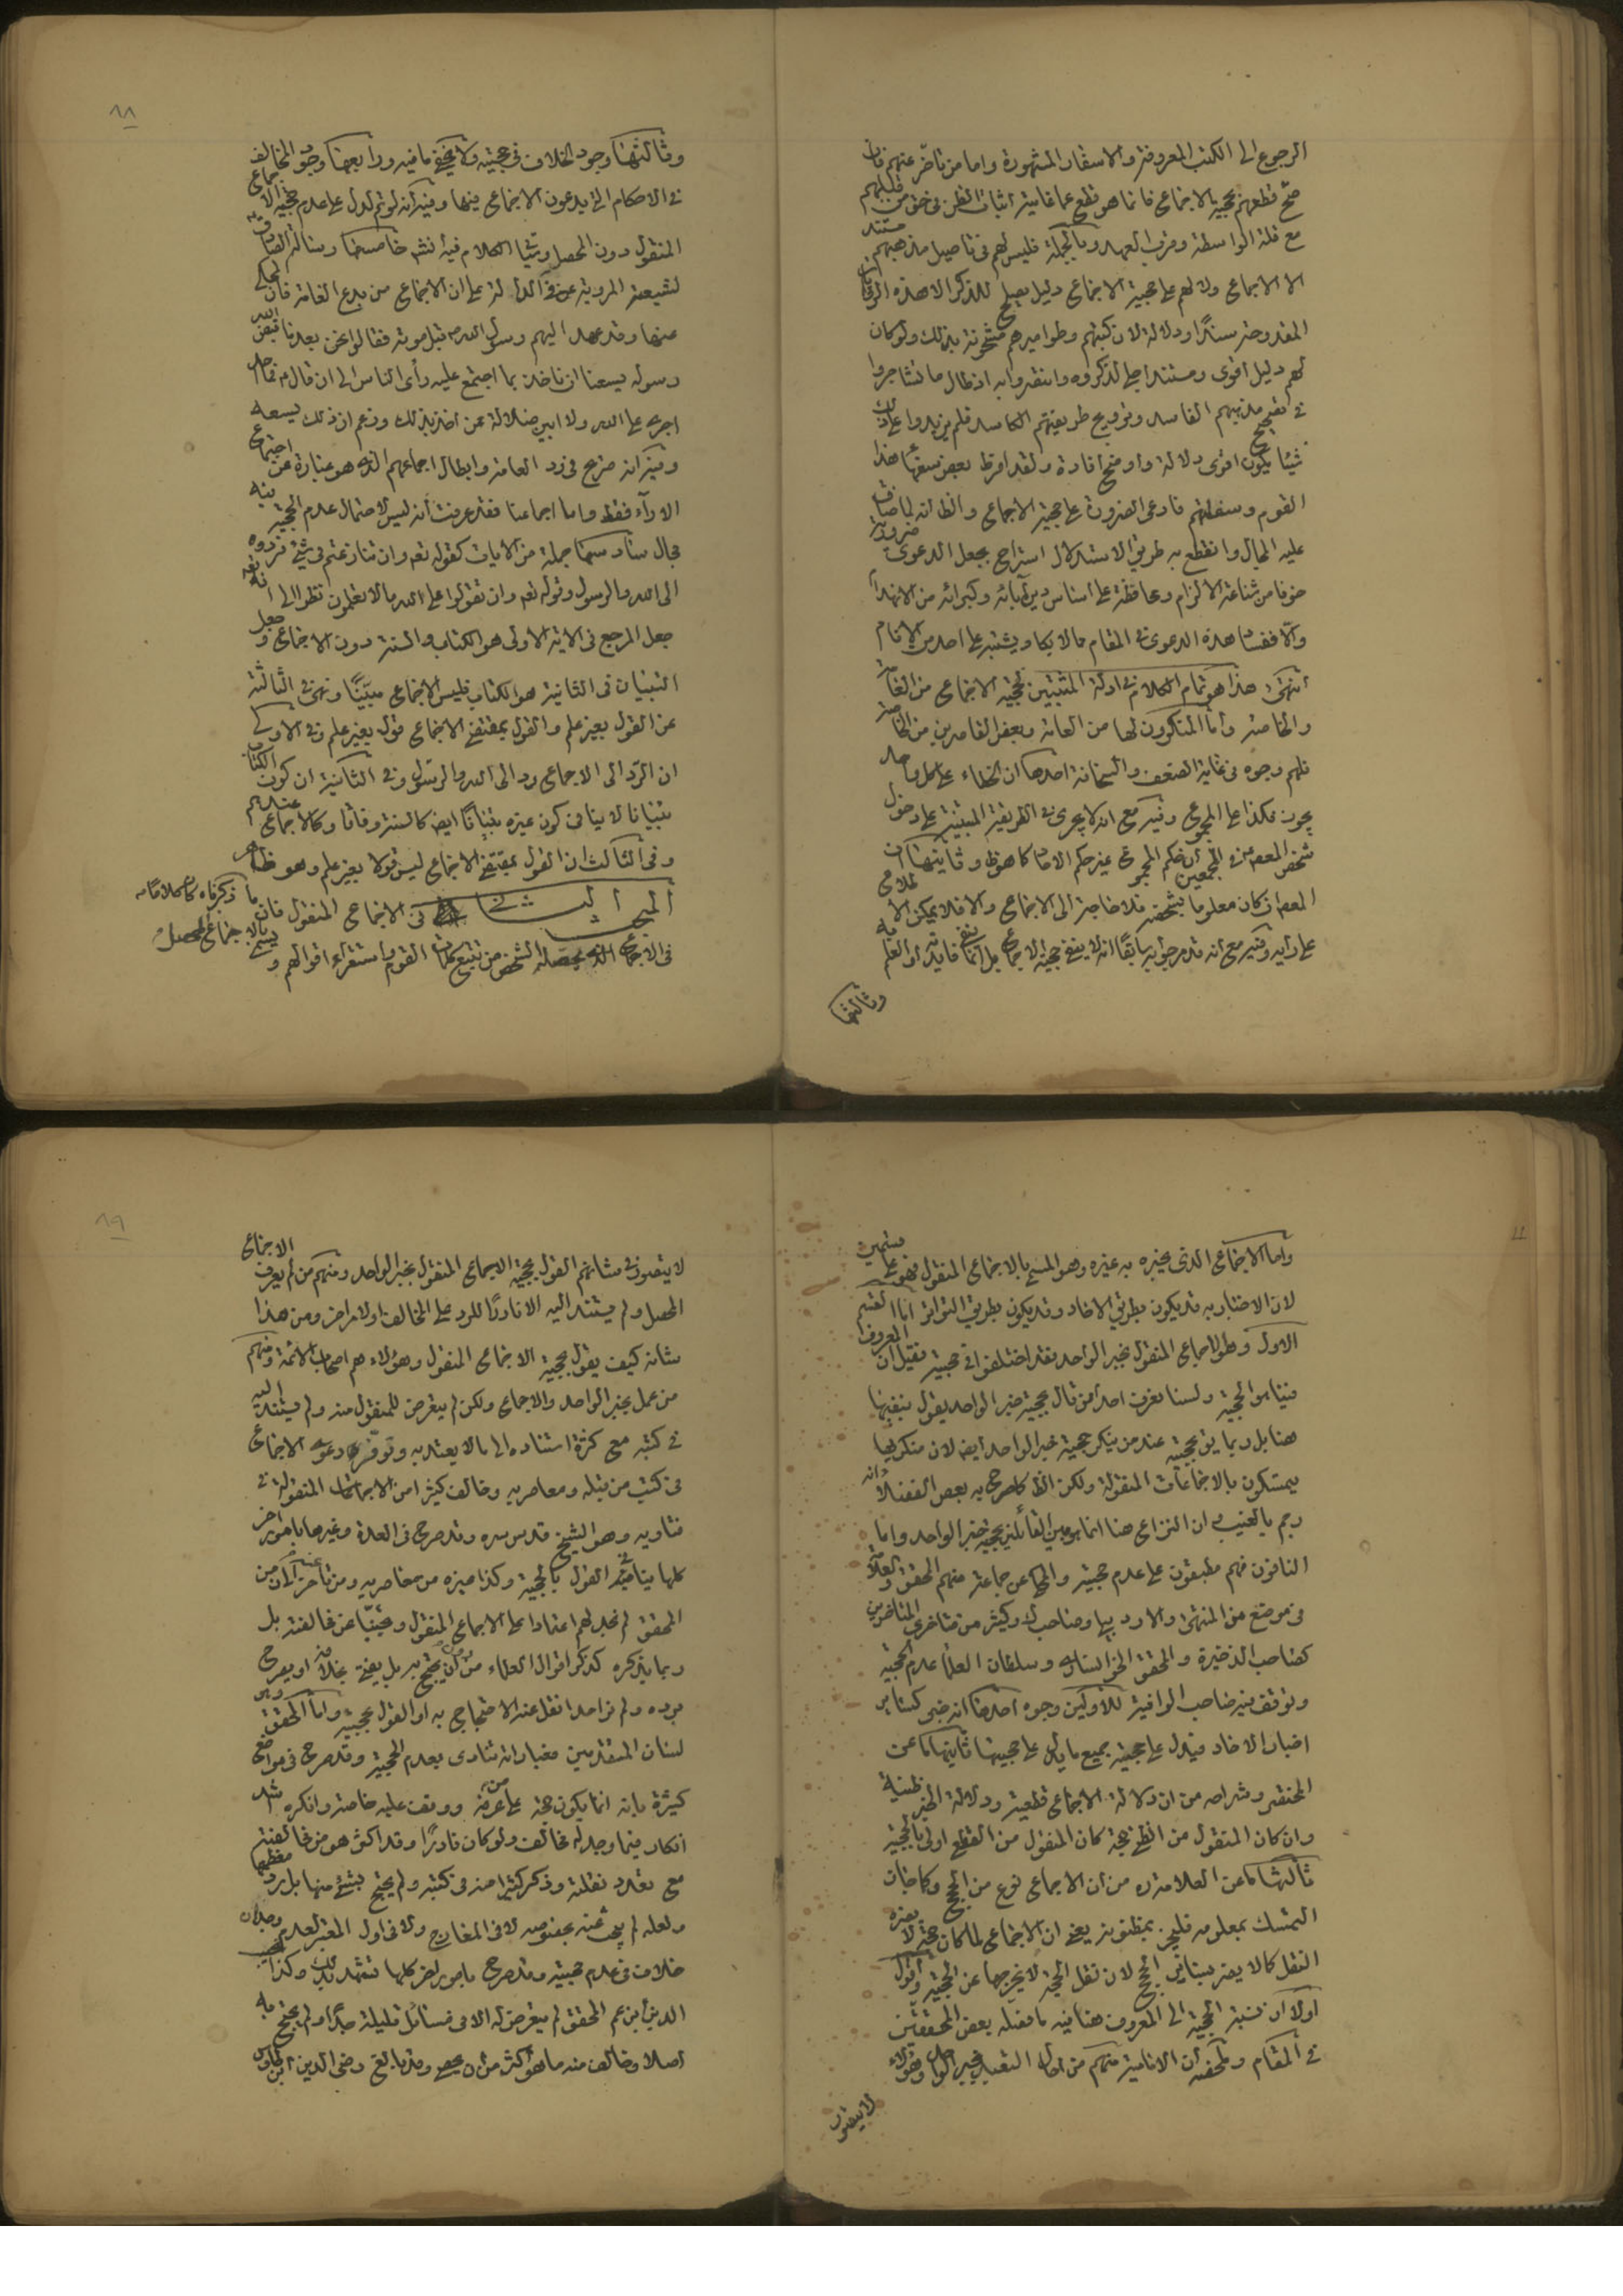 الرجوع الى الكتب المعروفة والاسفار المشهورة واما من تأخر عنهم فان
صح قطعهم بحجية الاجماع فانما هو قطع عما غايته اثبات الظن في حق من قبلهم
مع قلة الواسطة وقرب العهد وبالجملة فليس لهم في تفاصيل مذهبهم مستند
الا الاجماع ولا لهم على حجية الاجماع دليل يصلح للذكر الا هذه
المقدوحة سندًا ودلالة لان كتبهم وطواميرهم مشحونة بذلك ولو كان
لهم دليل اقوى ومستند اجلى لذكروه وانتقدوا به اذ طال ما تشاجروا
في تصحيح مذهبهم الفاسد وترويج طريقتهم الكاسد فلم يزيدوا على ذلك
شيئا يكون اقوى دلالة واوضح افادة ولقد افرط بعض سفهاء هذا
القوم وسفلتهم فادعى الضرورة على حجية الاجماع والظ انه لما ضاق
عليه المجال وانقطع به طريق الاستدلال استراح بجعل الدعوى ضرورية
خوفا من شناعة الالزام ومحافظة على اساس دين آبائه وكبرائه من الانهدام
والا ففساد هذه الدعوى في المقام مما لا يكاد يشتبه على احد من الانام
انتهى هذا هو تمام الكلام في ادلة المثبتين لحجية الاجماع من العامة
والخاصة واما المنكرون لها من العامة وبعض القاصرين من الخاصة
فلهم وجوه في غاية الضعف والسخافة احدها ان الخطاء على كل واحد
يجوز فكذا على المجموع وفيه مع انه لا يجرى في الطريقة المبتنية على دخول
شخص المعصوم في المجمعين ان حكم المجموع غير حكم الافراد كما هو ظ وثانيها ان
المعصوم ان كان معلوما بشخصه فلا حاجة الى الاجماع والا فلا يمكن الاطلاع
على رأيه وفيه مع انه قد مر جوابه سابقًا انه لا ينفى حجية الاجماع بل انما ينفى فايدته او العلم به
وثالثها
٨٨
وثالثها وجود الخلاف في حجيته ولا يخفى ما فيه ورابعها وجود المخالف
في الاحكام التي يدعون الاجماع فيها وفيه انه لو تم لدل على عدم حجية الاجماع
المنقول دون المحصل وسيأتي الكلام فيه انش خامسها رسالة الصادق
لشيعته المروية عن في الدالة على ان الاجماع من بدع العامة فان
منها وقد عهد اليهم رسول الله ص قبل موته فقالوا نحن بعد ما قبض الله
رسوله يسعنا ان ناخذ بما اجتمع عليه رأى الناس الى ان قال فما احد
اجرء على الله ولا ابين ضلالة ممن اخذ بذلك وزعم ان ذلك يسعه
وفيه انه صرح في رد العامة وابطال اجماعهم الذي هو عبارة عن اجتماع
الآراء فقط واما اجماعنا فقد عرفت انه ليس لاحتمال عدم الحجية فيه
مجال سادسها جملة من الآيات كقوله تع وان تنازعتم في شئ فردوه
الى الله والرسول وقوله تع وان تقولوا على الله مالا تعلمون نظرا الى انه تع
جعل المرجع في الآية الاولى هو الكتاب والسنة دون الاجماع وجعل
التبيان في الثانية هو الكتاب فليس الاجماع مبيّنًا ونهى في الثالثة
عن القول بغير علم والقول بمقتضى الاجماع قول بغير علم وفي الاولى
ان الرد الى الاجماع رد الى الله والرسول وفي الثانية ان كون الكتاب
تبيانا لا ينافى كون غيره تبيانًا ايضا كالسنة وفاقا وكالاجماع عندهم
وفي الثالث ان القول بمقتضى الاجماع ليس قولا بغير علم وهو ظاهر
المبحث الثاني في الاجماع المنقول فان ما ذكرناه كان كلامًا
في الاجماع الذي يحصله الشخص من تتبع كلمات القوم واستقراء اقوالهم ويسمى بالاجماع المحصل
واما الاجماع الذي يخبره به غيره وهو المسمى بالاجماع المنقول فهو على قسمين
لان الاخبار به قد يكون بطريق الاحاد وقد يكون بطريق التواتر اما القسم
الاول وهو الاجماع المنقول بخبر الواحد فقد اختلفوا في حجيته فقيل ان المعروف
فيما هو الحجية ولسنا نعرف احدا ممن قال بحجية خبر الواحد يقول بنفيها
هنا بل ربما يق بحجيته عند من ينكر حجية خبر الواحد ايضا لان منكريها
يتمسكون بالاجماعات المنقولة ولكن الظ كما صرح به بعض الفضلاء انه
رجم بالغيب وان النزاع هنا انما هو بين القائلين بحجية خبر الواحد واما
النافون فهم مطبقون على عدم حجيته والمحكى عن جماعة منهم المحقق والعلامة
في موضع من المنتهى والاردبيلى وصاحب ك وكثير من متاخرى المتاخرين
كصاحب الذخيرة والمحقق الخوانسارى وسلطان العلماء عدم الحجية
وتوقف فيه صاحب الوافية للاولين وجوه احدها انه خبر كساير
اخبار الاحاد فيدل على حجيته جميع ما يدل على حجيتها ثانيها ما عن
المختصر وشراحه من ان دلالة الاجماع قطعية ودلالة الخبر ظنية
وان كان المنقول من الظنى حجة كان المنقول من القطع اولى بالحجية
ثالثها ما عن العلامة ره من ان الاجماع نوع من الحجج وكما جاز
التمسك بمعلومه فليجز بمظنونه يعنى ان الاجماع لما كان حجة لا يضره
النقل كما لا يضر بساير الحجج لان نقل الحجة لا يخرجها عن الحجية واقول
اولا ان نسبة الحجية الى المعروف هنا فيه ما فصله بعض المحققين
في المقام وملخصه ان الامامية منهم من احال التعبد بخبر الواحد وهؤلاء
لا يتصور
٨٩
لا يتصور في شانهم القول بحجية الاجماع المنقول بخبر الواحد ومنهم من لم يعرف الاجماع
المحصل ولم يستند اليه الا نادرًا للرد على المخالف او لامر اخر ومن هذا
شانه كيف يقول بحجية الاجماع المنقول وهؤلاء هم اصحاب الائمة ومنهم
من عمل بخبر الواحد والاجماع ولكن لم يتعرض للمنقول منه ولم يستند اليه
في كتبه مع كثرة استناده الى ما لا يعتد به وتوفر دعوى الاجماع
في كتب من قبله ومعاصريه وخالف كثيرا من الاجماعات المنقولة في
فتاويه وهو الشيخ قدس سره وقد صرح في العدة وغيرها بامور اخر
كلها ينافى القول بالحجية وكذا غيره من معاصريه ومن تاخر عنه الى زمن
المحقق لم نجد لهم اعتمادا على الاجماع المنقول وتجنبًا عن مخالفته بل
ربما يذكره كذكر اقوال العلماء من دون ان يحتج به بل يفتى بخلافه او يصرح
برده ولم نر احدا نقل عنه الاحتجاج به او القول بحجيته واما المحقق
لسان المتقدمين فعباراته تنادى بعدم الحجية وقد صرح في مواضع
كثيرة بانه انما يكون حجة على من عرفه ووقف عليه خاصة وانكره اشد
انكار فيما وجد له مخالف ولو كان نادرًا وقد اكثر هو من مخالفته
مع تعدد نقلته وذكر كثيرا منه في كتبه ولم يحتج بشئ منها بل رد معظمها
ولعله لم يبحث عنه بخصوصه لا في المعارج ولا في اول المعتبر لعدم وجدان
خلاف في عدم حجيته وقد صرح بامور اخر كلها تشهد بذلك وكذا نجيب
الدين ابن عم المحقق لم يتعرض له الا في مسائل قليلة جدًا ولم يحتج به
اصلا وخالف منه ما هو اكثر من ان يحصى وقد بالغ رضى الدين ابن طاوس